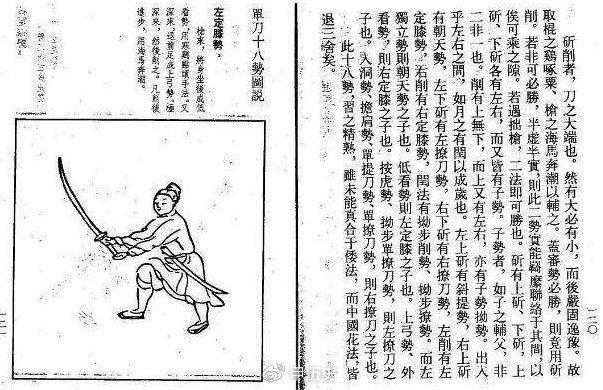 斫削者,刀之大端也。然有大必有小,而後嚴固逸豫。故
取棍之鷄啄粟、槍之海馬奔潮以輔之。蓋審勢必勝,則竟用斫
削。若非可必勝,半虛半實,則此二勢實能羈縻聯絡于其間,以
俟可乘之隙。若遇拙槍,二法即可勝也。斫有上斫、下斫,上
斫、下斫各有左右,而又皆有子勢。子勢者,如子之輔父,非
二非一也。削有上無下,而上又有左右,亦有子勢拗勢。出入
乎左右之間,如月之有閏以成歲也。左上斫有斜提勢,右上斫
有朝天勢,左下斫有左撩刀勢,右下斫有右撩刀勢,左削有左
定膝勢,右削有右定膝勢,閏法有拗步削勢、拗步撩勢。而左
獨立勢則朝天勢之子也。低看勢則左定膝之子也。上弓勢、外
看勢,則右定膝之子也。按虎勢、拗步單撩刀勢,則左撩刀之
子也。入洞勢、擔肩勢、單提刀勢、單撩刀勢,則右撩刀之子也。
此十八勢,習之精熟,雖未能真合于倭法,而中國花法,皆
退三舍矣。
單刀十八勢圖説
左定膝勢。
槍來,將步坐後成低
看勢,用鷄啄粟手法。又
深來,足成上弓勢。極
深來,然後削之。凡削後
進步,用海馬奔潮。